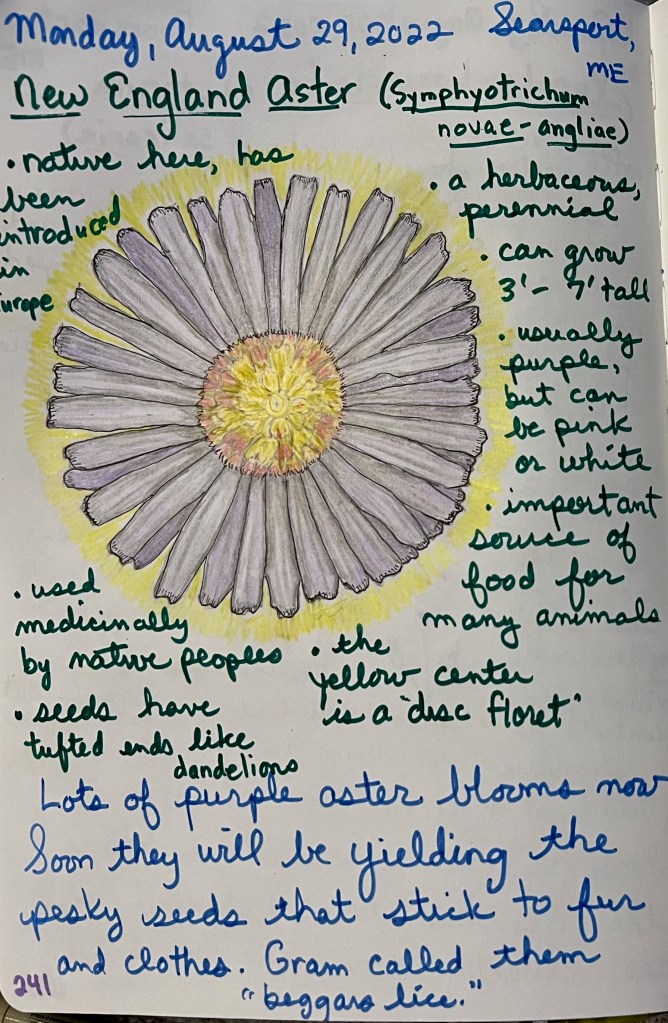 Monday, August 29, 2022 Searsport,
ME
New England Aster (Symphyotrichum
novae-angliae)
• native here, has
been
introduced
in
Europe
• a herbaceous,
perennial
• can grow
3'- 7' tall
• usually
purple,
but can
be pink
or white
• important
source of
food for
many animals
• used
medicinally
by native peoples
• seeds have
tufted ends like
dandelions
• the
yellow center
is a "disc floret"
Lots of purple aster blooms now
Soon they will be yielding the
pesky seeds that stick to fur
and clothes. Gram called them
"beggars lice."
241